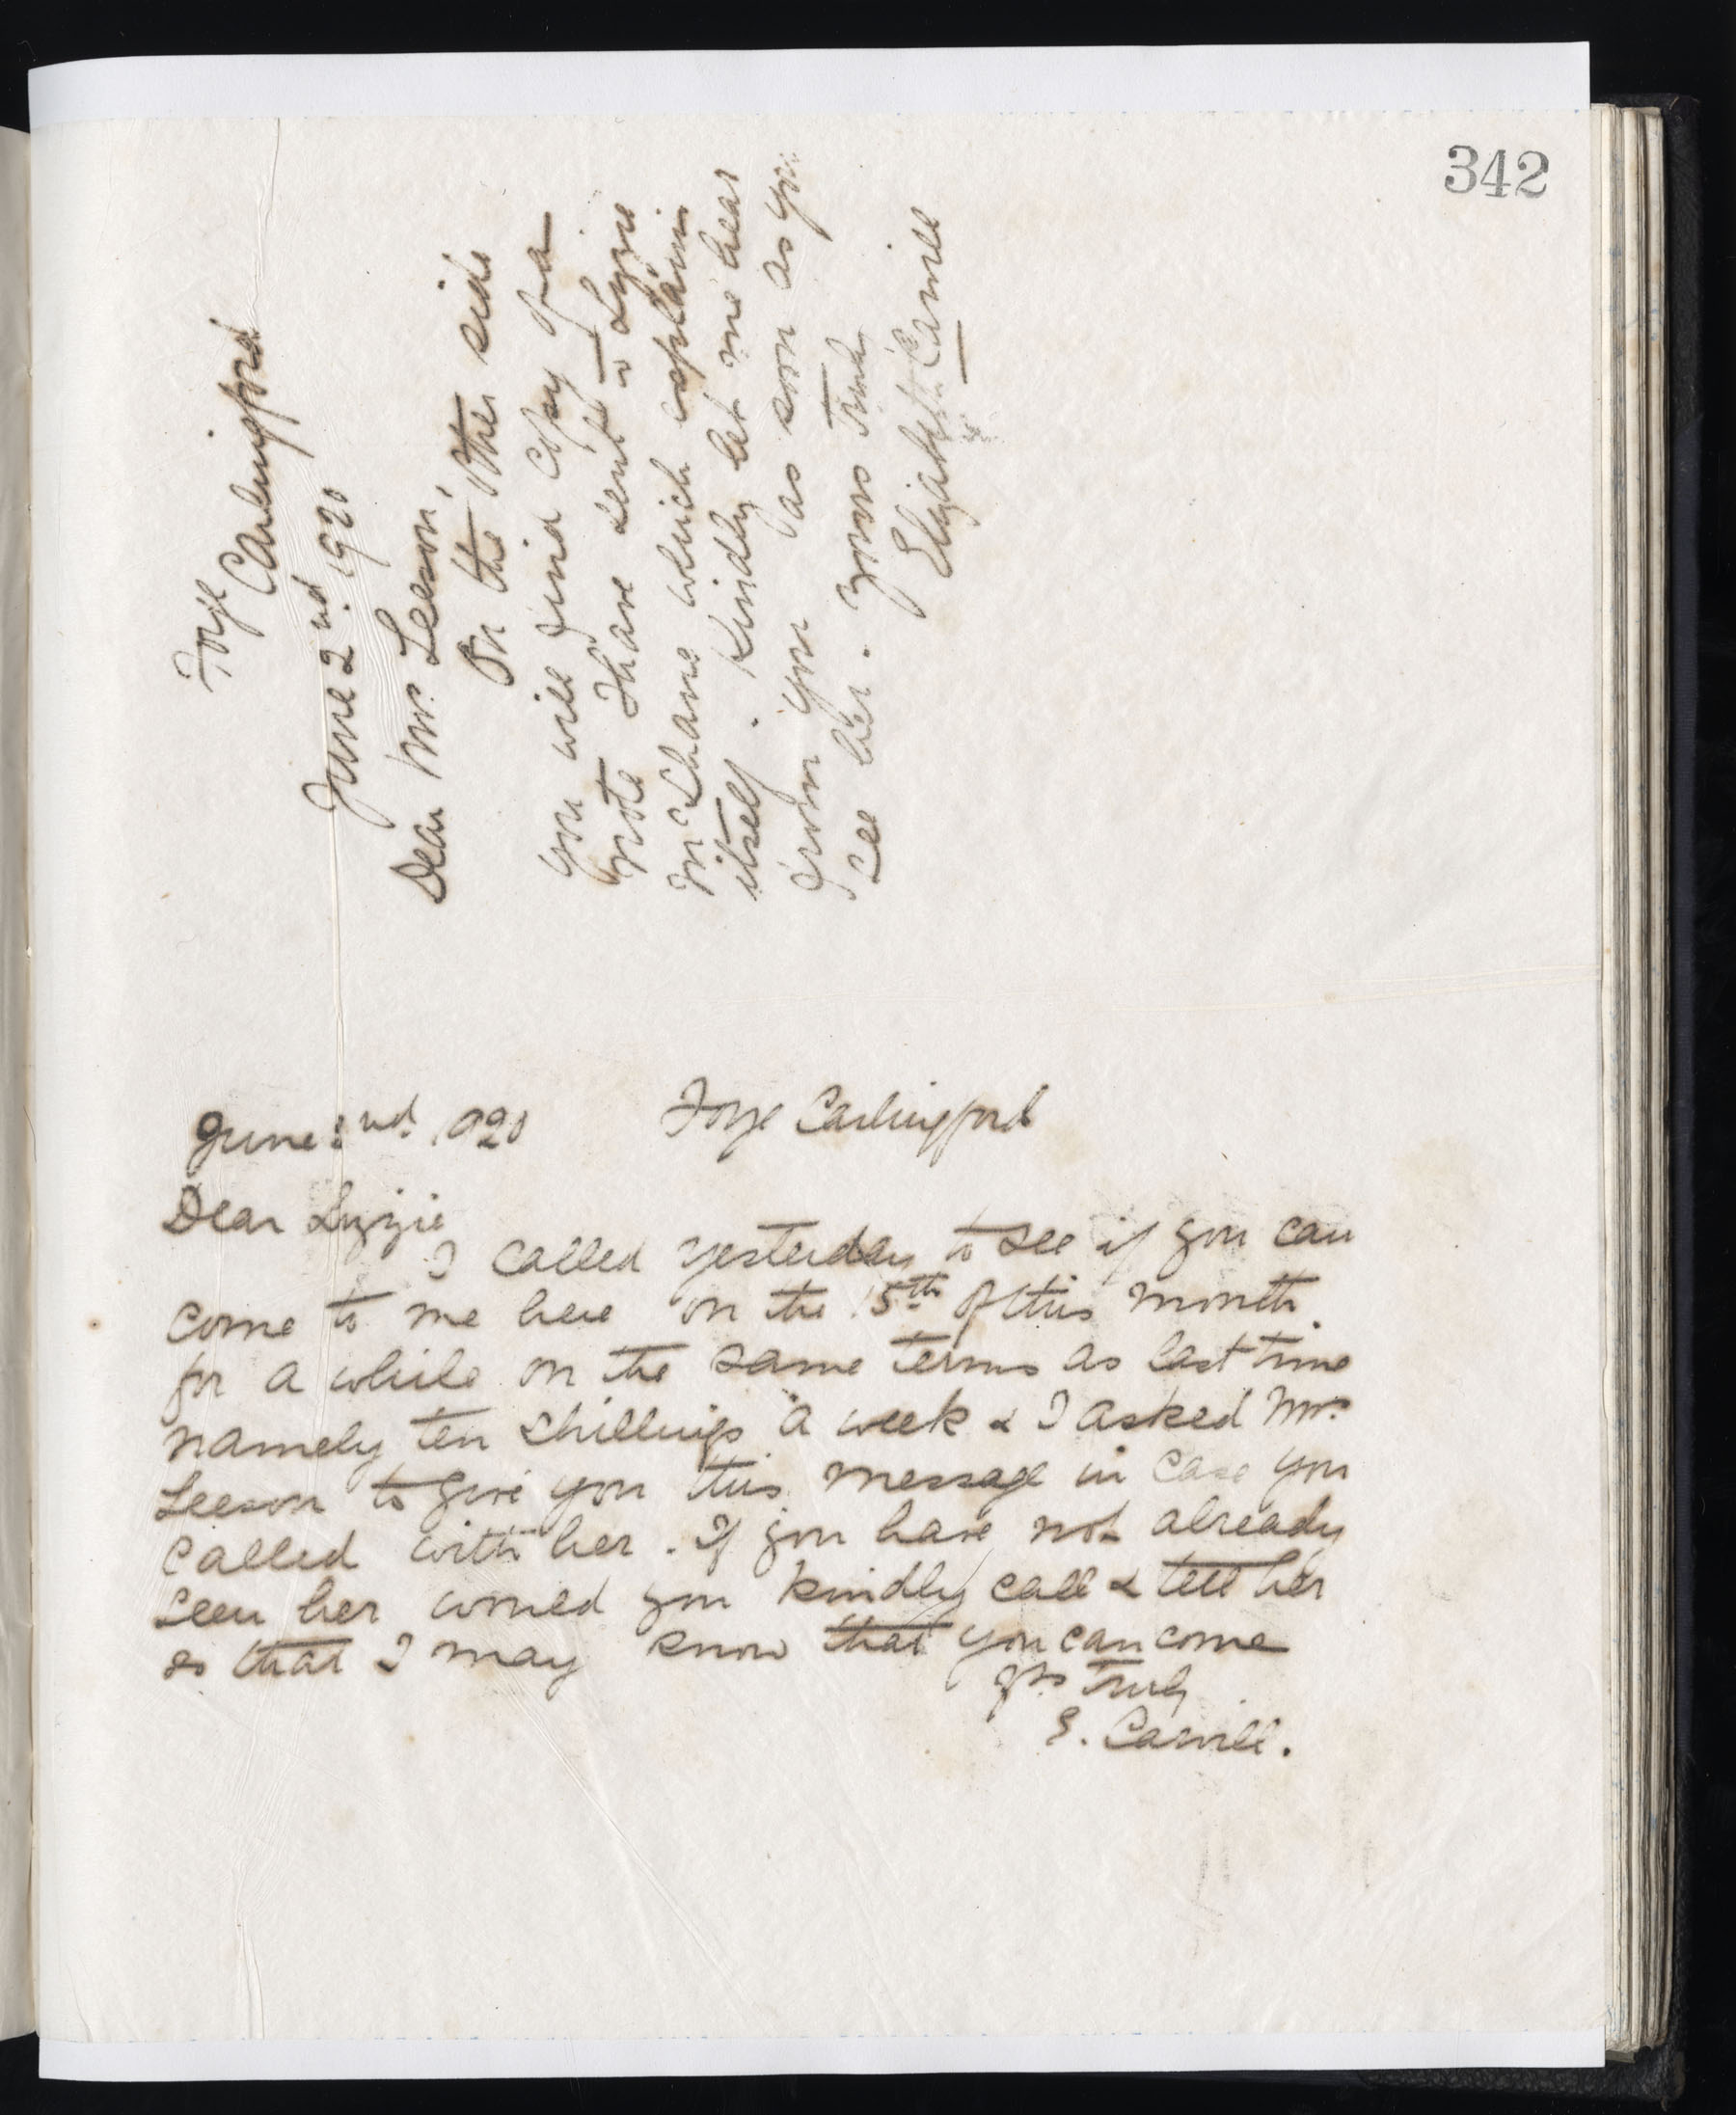 342
Foyé Carlingford
June 2nd. 1920
Dear Mrs. Leeson,
On the other side
you will find copy of a
note I have sent to Lizzie
McShane which explains
itself. Kindly let me hear
from you as soon as you
see her. Yours Truly
Elizabeth Carvill
June 2nd. 1920 Foyé Carlingford
Dear Lizzie
I called yesterday to see if you can
come to me here on the 15th of this month.
for a while on the same terms as last time
namely ten shillings a week & I asked Mrs.
Leeson to give you this message in case you
called with her. If you have not already
seen her would you kindly call & tell her
so that I may know that you can come
Yrs Truly
E. Carvill.